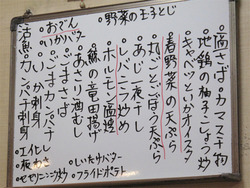 塩さば
カマス干物
地鶏の柚子こしょう炒め
キャベツといかオイスター
春野菜の天ぷら
丸ごとごぼう天ぷら
あじ一夜干し
レバニラ炒め
ホルモン塩焼
鯨の竜田揚げ
あさり酒むし
ごまさば
ごまカンパチ
いか刺身
カンパチ刺身
活魚
おでん
いかバター
野菜の玉子とじ
・エイヒレ
・しいたけバター
・せせりニンニク炒め
・フライドポテト